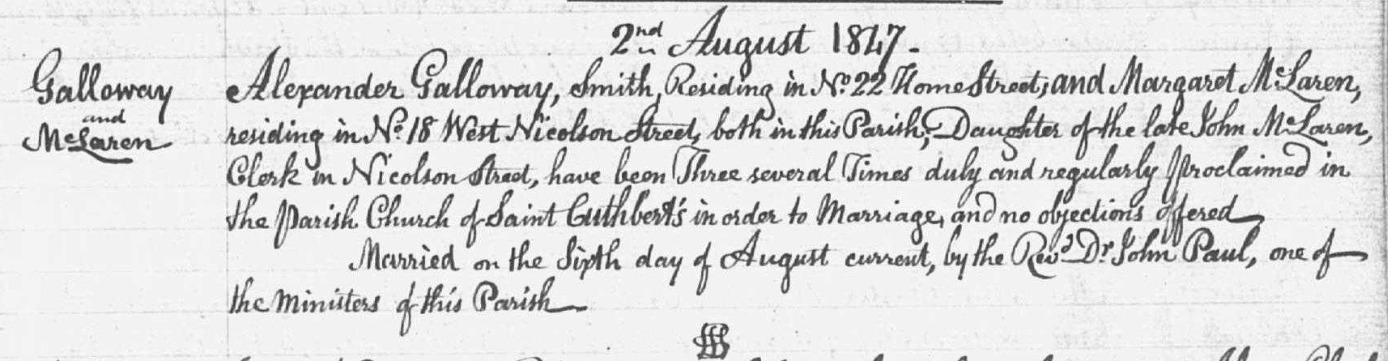 2nd August 1847.
Galloway and McLaren
Alexander Galloway, Smith, Residing in No. 22 Home Street, and Margaret McLaren,
residing in No. 18 West Nicolson Street, both in this Parish, Daughter of the late John McLaren,
Clerk in Nicolson Street, have been Three several Times duly and regularly Proclaimed in
the Parish Church of Saint Cuthbert's in order to Marriage, and no objections offered
Married on the Sixth day of August current, by the Revd. Dr. John Paul, one of
the Ministers of this Parish